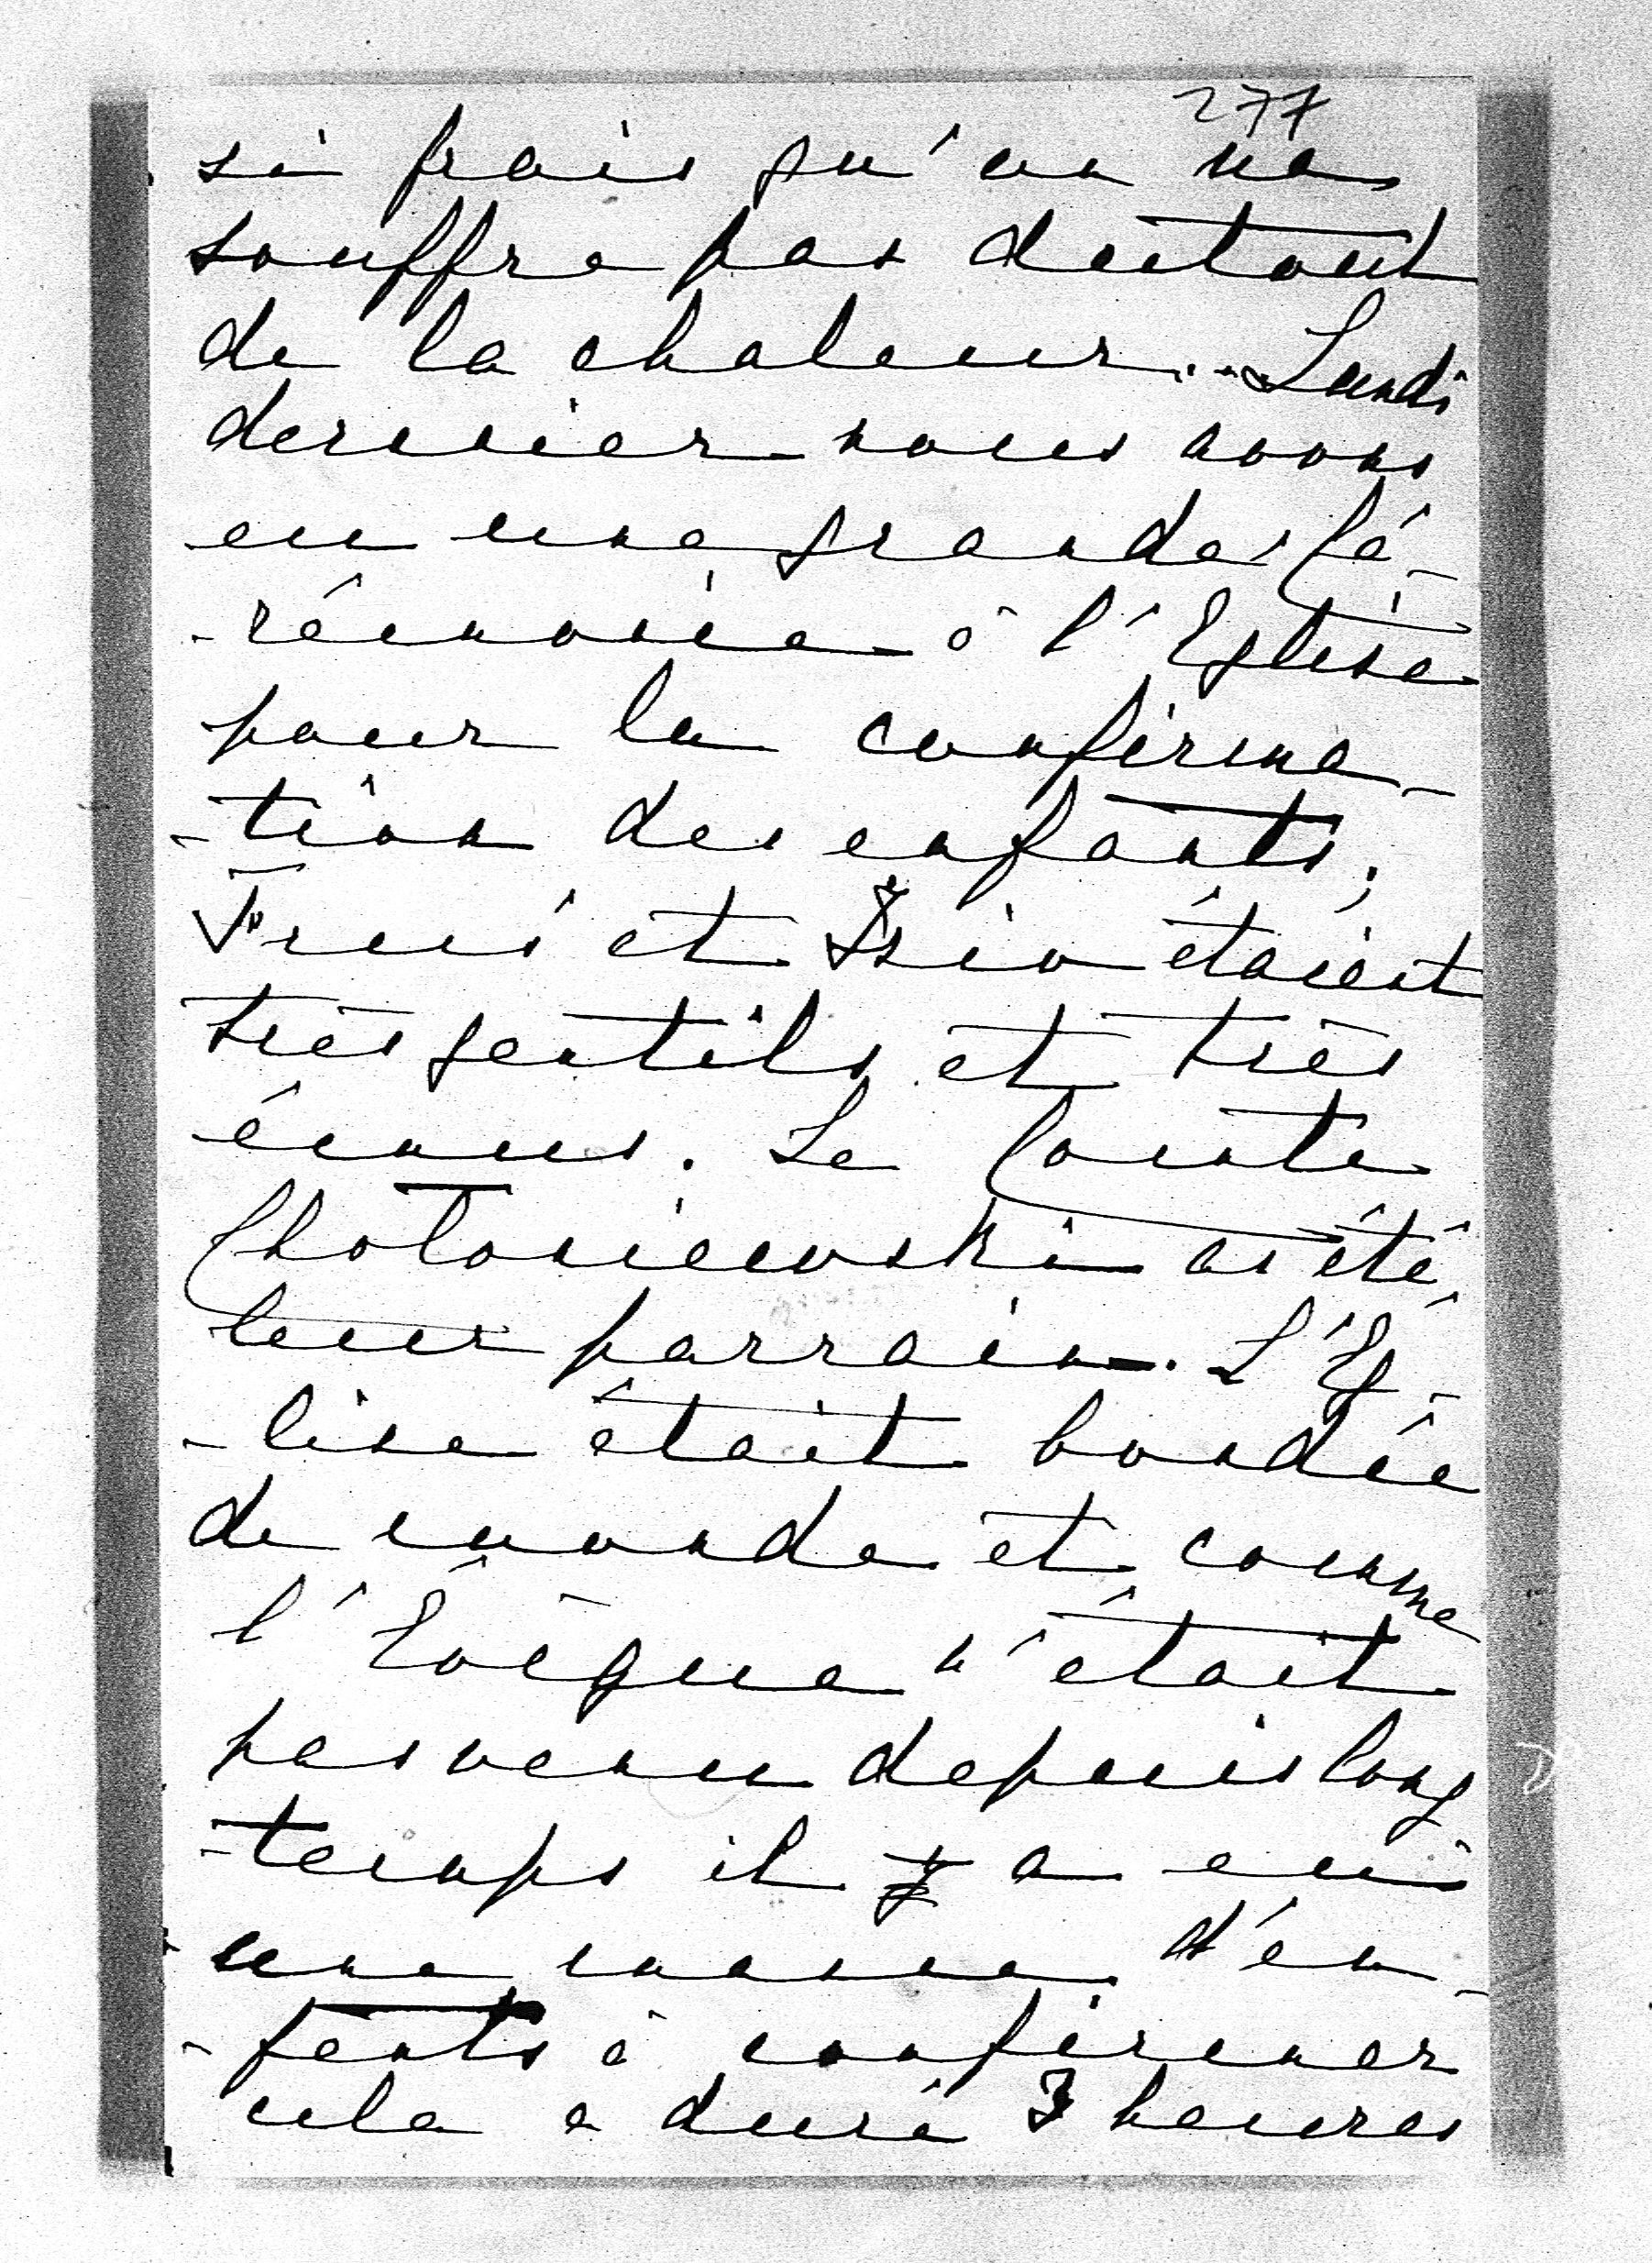 277
si frais qu'on ne
souffre pas du tout
de la chaleur... Lundi
dernier nous avons
eu une grande Cé-
-rémonie à l'Eglise
pour la confirma-
-tion des enfants;
et étaient
très gentils et très
émus. Le Comte
Choloniewski a été
leur parrain. L'Eg-
-lise était bondée
de monde et comme
l'Evêque n'était
pas venu depuis long
-temps il y a eu
une masse d'en-
-fants à confirmer
cela a duré 3 heures